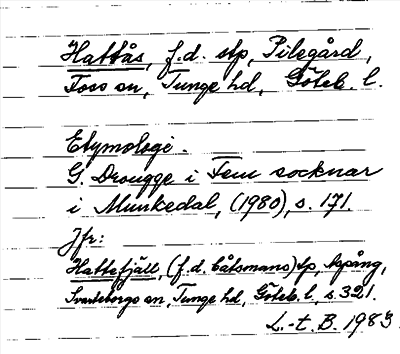 Hattås, f.d. stp, Pilegård,
Foss sn, Tunge hd, Göteb. l.
Etymologi.
G. Drougge i Fem socknar
i Munkedal, (1980), s. 171.
Jfr:
Hattefjäll, (f.d. båtsmans)tp, Aspång,
Svarteborgs sn, Tunge hd, Göteb. l, s. 321.
L.-t. B. 1983